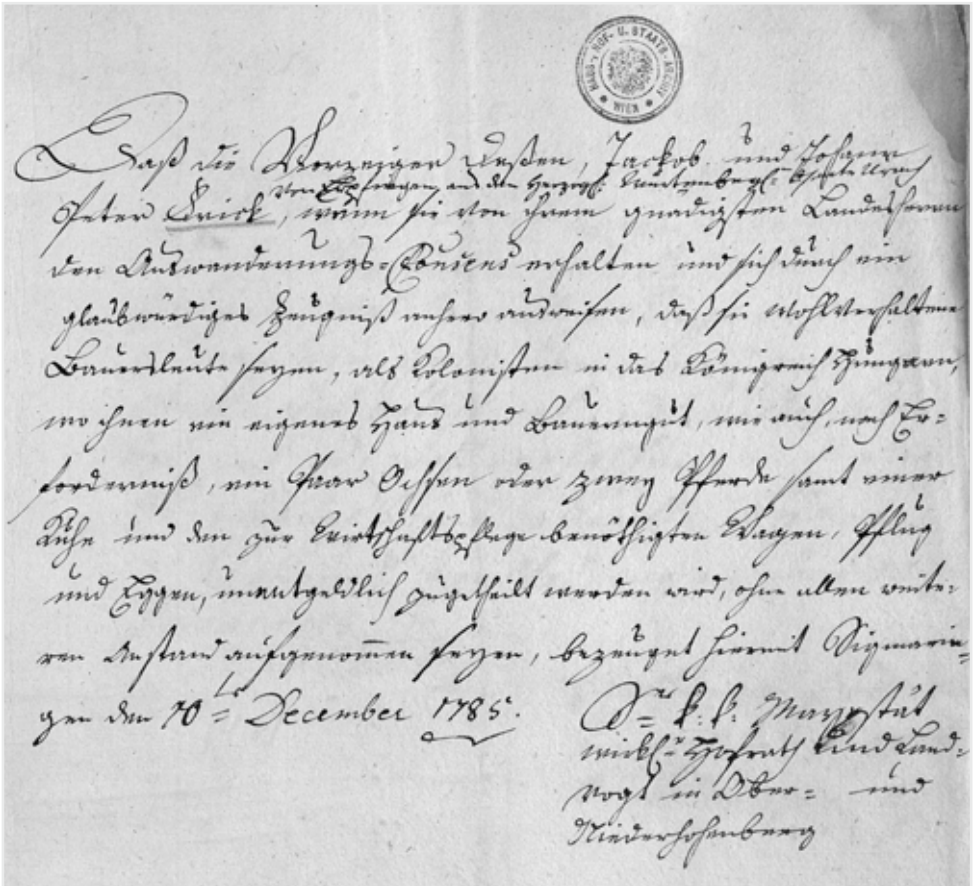 HAUS-, HOF- U. STAATS-ARCHIV
* WIEN *
Daß die Vorzeiger dessen, Jackob und Johann
von Ehpfingen, aus dem Herzogl: Würtenberg: Oberamt Urach
Peter Frick, wenn sie von ihrem gnädigsten Landesherrn
den Auswanderungs-Consens erhalten und sich durch ein
glaubwürdiges Zeugniß anhero ausweisen, daß sie wohlverhaltene
Bauersleute seyen, als Kolonisten in das Königreich Hungarn,
wo ihnen ein eigenes Haus und Bauerngut, wie auch, nach Er=
forderniß, ein Paar Ochsen oder zwey Pferde samt einer
Kuhe und den zur Wirtschaftspflege benöthigten Wagen, Pflug
und Eggen, unentgeldlich zugetheilt werden wird, ohne allen weite=
ren Anstand aufgenommen seyen, bezeuget hiermit Sigmarin=
gen den 10ten December 1785.
Sr k: k: Mayestät
wirkl: Hofrath und Land=
vogt in Ober= und
Niederhohenberg